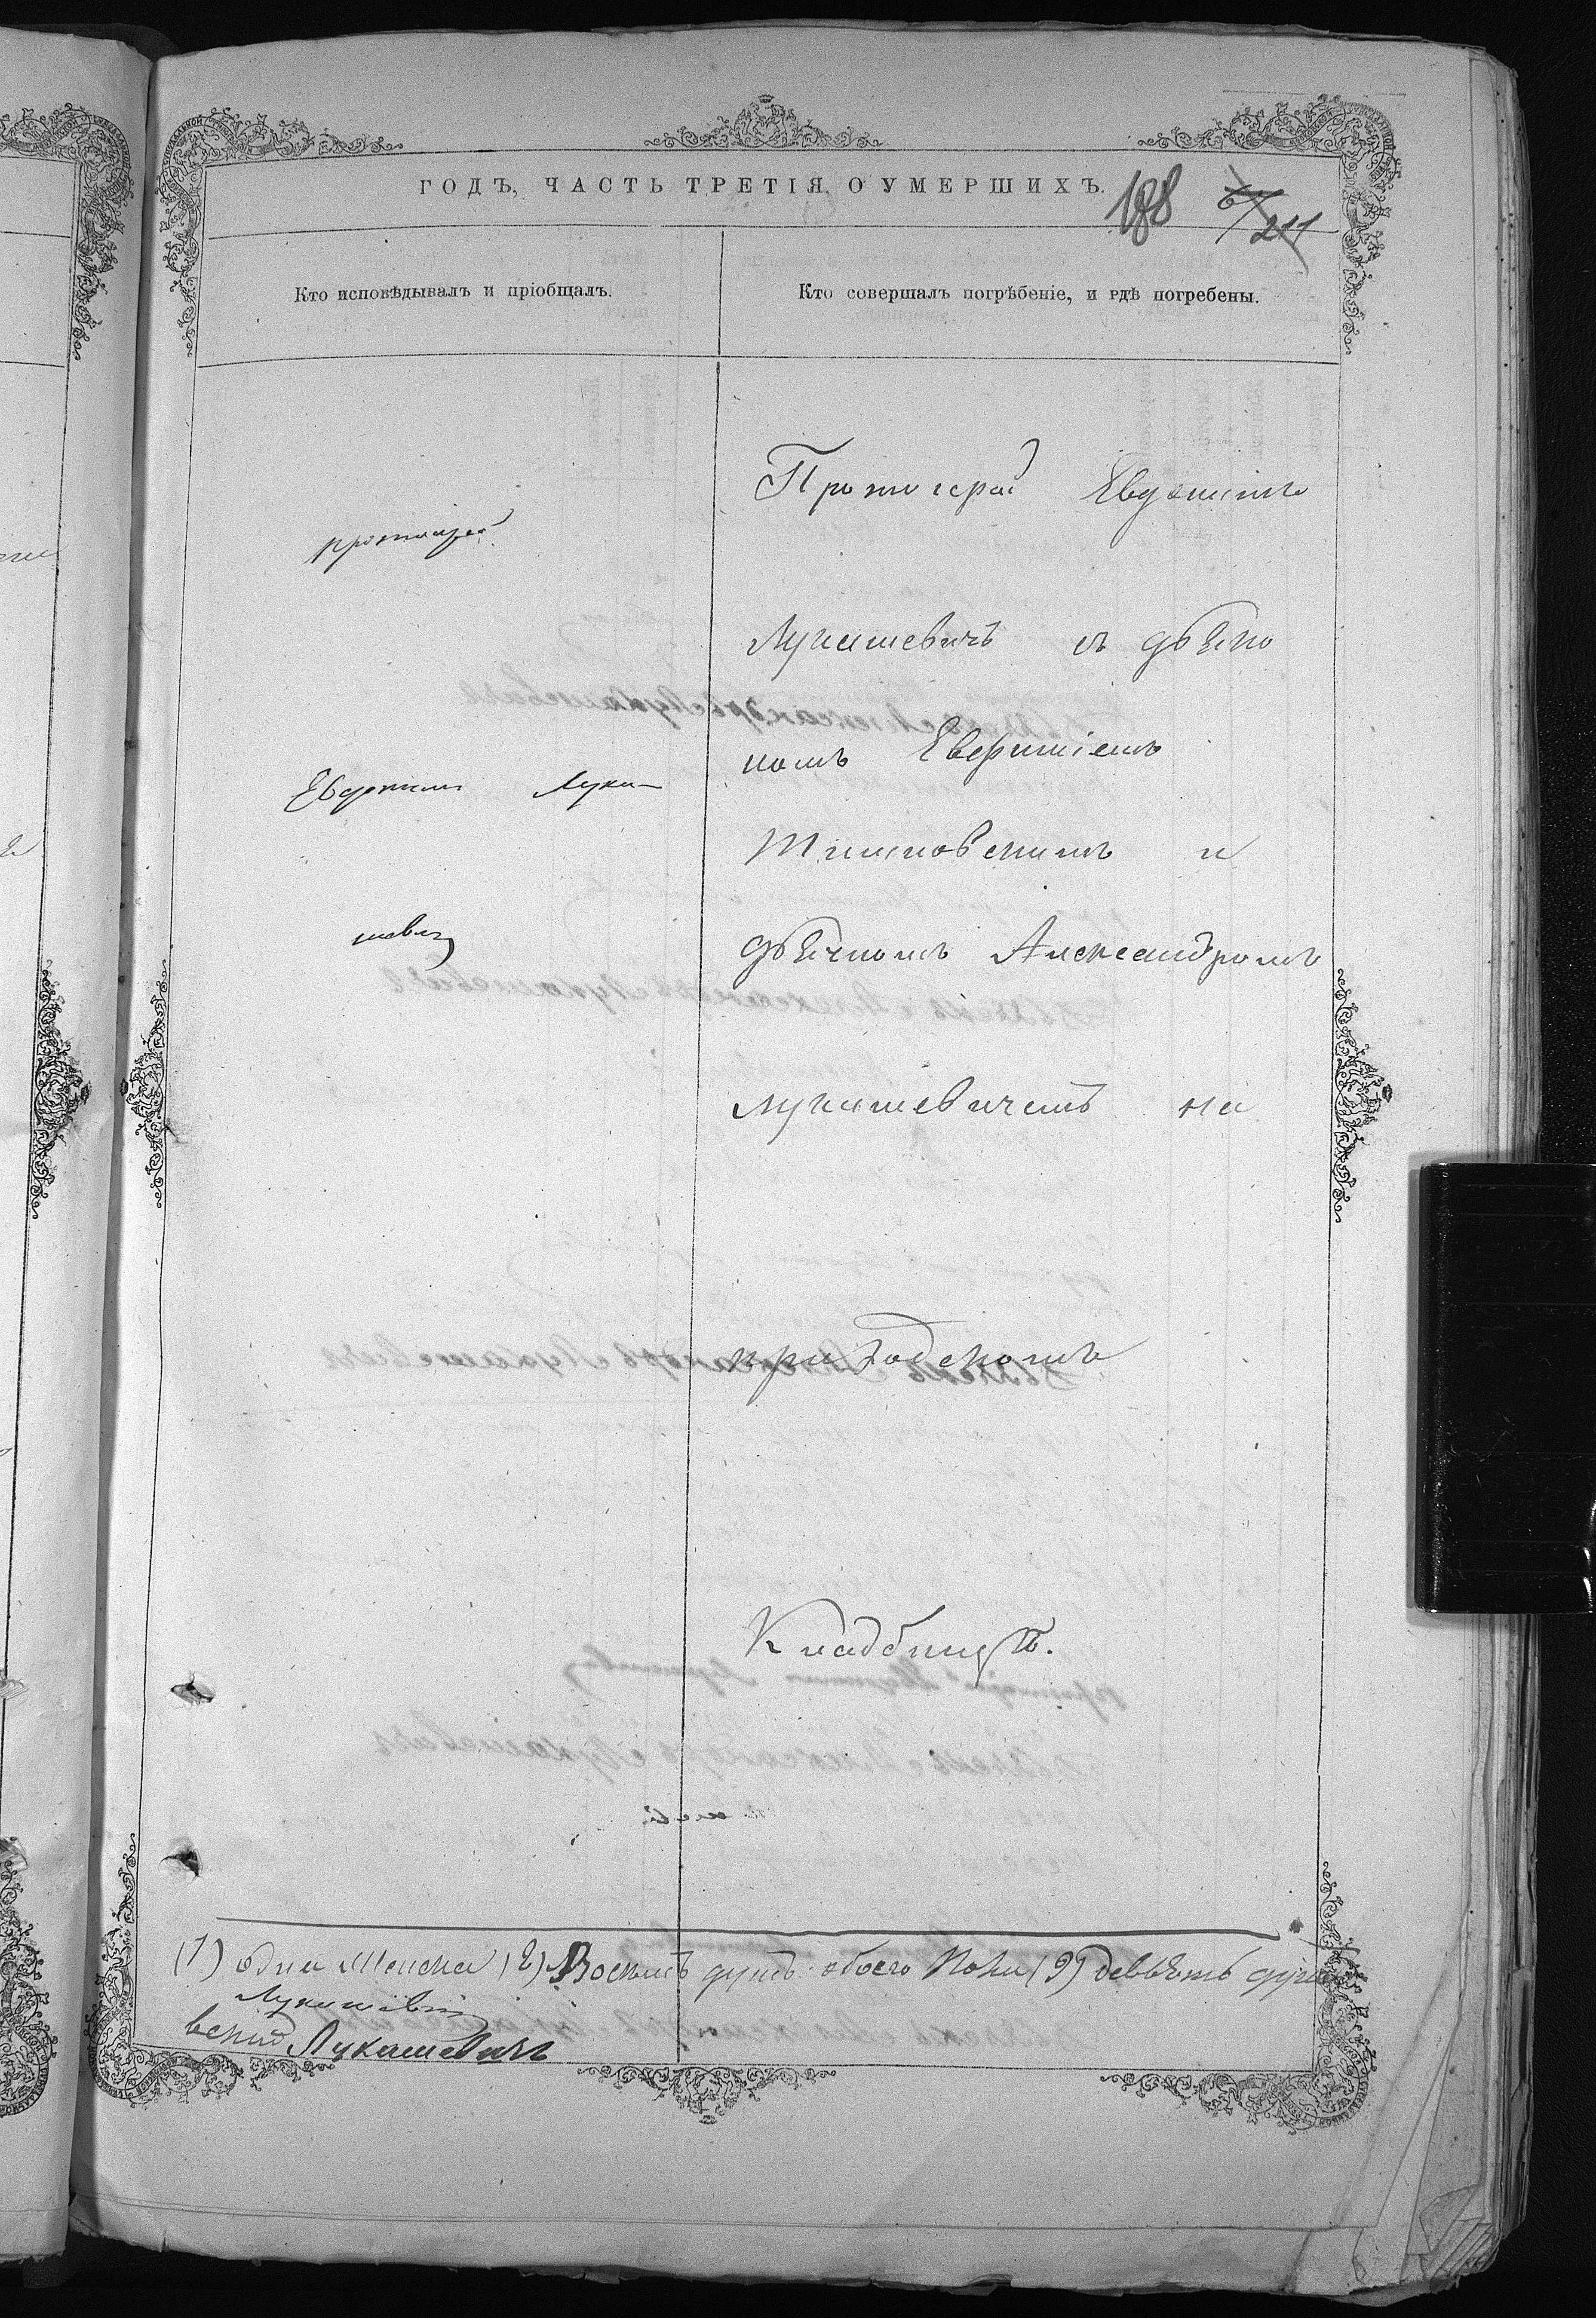 ГОДЪ, ЧАСТЬ ТРЕТІЯ, О УМЕРШИХЪ.
188 67/211
Кто исповѣдывалъ и пріобщалъ.
Кто совершалъ погрѣбеніе, и гдѣ погребены.
протоіерей
Евфимій Лука-
шевичъ
Протоіерей Евфимій
Лукашевичъ съ дьяко
номъ Евфиміемъ
дьячкомъ Александромъ
Лукашевичемъ на
приходскомъ
Кладбищѣ.
(1) одна женска (8) Восемь душъ обоего пола (9) девять душъ
Лукашевичъ
Лукашевичъ